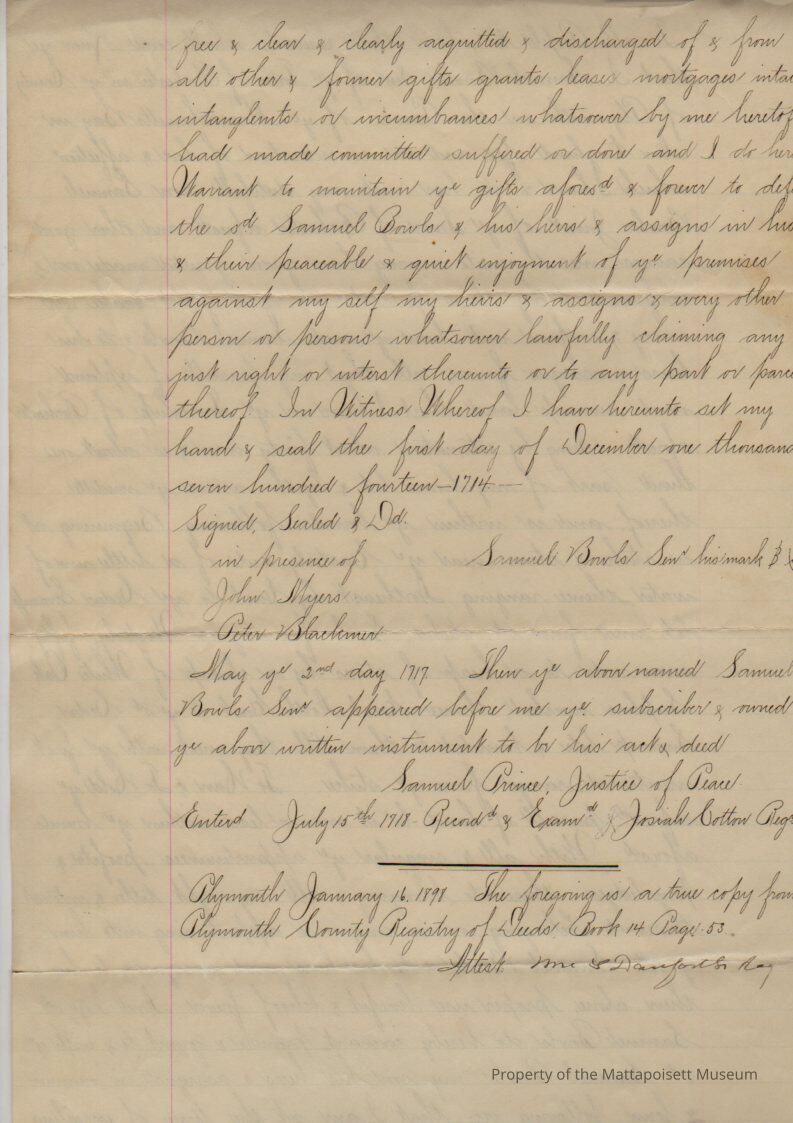 free & clear & clearly acquitted & discharged of & from
all other & former gifts grants leases mortgages intai
intanglemts or incumbrances whatsoever by me heretof
had made committed suffered or done and I do her
Warrant to maintain ye gifts aforesd & forever to def
the sd Samuel Bowls & his heirs & assigns in his
& their peaceable & quiet enjoyment of ye premises
against my self my heirs & assigns & every other
person or persons whatsoever lawfully claiming any
just right or interst thereunto or to any part or parce
thereof In Witness Whereof I have hereunto set my
hand & seal the first day of December one thousand
seven hundred fourteen—1714—
Signed, Sealed & Dd.
in presence of Samuel Bowls Senr his mark
John Myers
Peter Blackmer
May ye 2nd day 1717. Then ye abovenamed Samuel
Bowls Senr appeared before me ye subscriber & owned
ye above written instrument to be his act & deed
Samuel Prince, Justice of Peace
Enterd July 15th 1718 Recordd & Examd Josiah Cotton Regr
Plymouth January 16, 1898 The foregoing is a true copy from
Plymouth County Registry of Deeds Book 14 Page 53.
Attest. Danforth Reg
Property of the Mattapoisett Museum